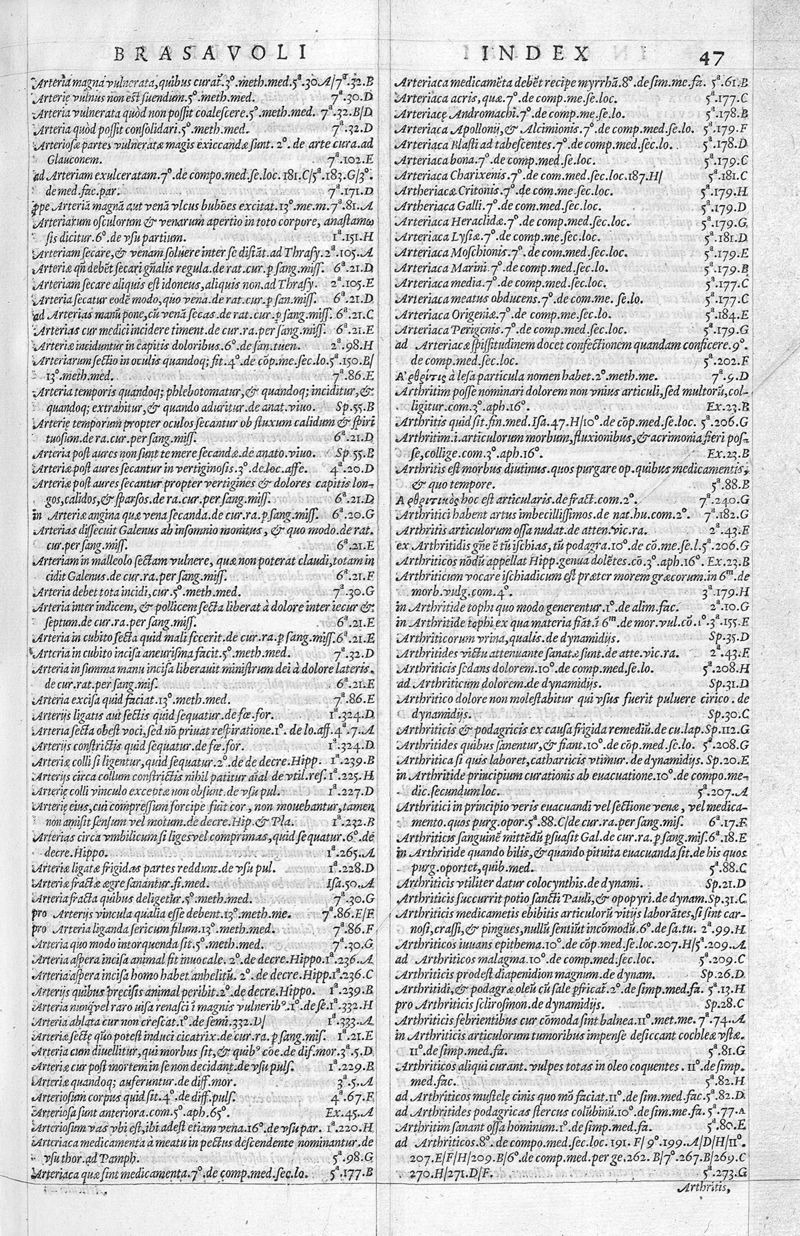 BRASAVOLI INDEX 47
Arteria magna vulnerata, quibus curat. 3°.meth.med.5ª.30.A/7ª.32.B
Arterię vulnus non est suendum.5°.meth.med. 7ª.30.D
Arteria vulnerata quòd non possit coalescere.5°.meth.med. 7ª.32.B/D
Arteria quòd possit consolidari.5°.meth.med. 7ª.32.D
Arteriosæ partes vulneratæ magis exiccandæ sunt. 2°. de arte cura.ad
Glauconem. 7ª.102.E
ad Arteriam exulceratam.7°.de compo.med.se.loc. 181.C/5ª.183.G/3°.
de med.fac.par. 7ª.171.D
ppe Arteriā magnā aut venā vlcus bubões excitat.13°.me.m.7ª.81.A
Arteriarum osculorum & venarum apertio in toto corpore, anastamω
sis dicitur.6°.de vsu partium. 1ª.151.H
Arteriam secare,& venam soluere inter se distāt.ad Thrasy.2ª.105.A
Arteriæ qñ debēt secari gñalis regula.de rat.cur.p sang.miss. 6ª.21.D
Arteriam secare aliquis est idoneus,aliquis non.ad Thrasy. 2ª.105.E
Arteria secatur eodē modo,quo vena.de rat.cur.p san.miss. 6ª.21.D
ad Arterias manū pone,cū venā secas.de rat.cur.p sang.miss. 6ª.21.C
Arterias cur medici incidere timent.de cur.ra.per sang.miss. 6ª.21.E
Arteriæ inciduntur in capitis doloribus.6°.de san.tuen. 2ª.98.H
Arteriarum sectio in oculis quandoq; fit.4°.de cōp.me.sec.lo.5ª.150.B/
13°.meth.med. 7ª.86.E
Arteria temporis quandoq; phlebotomatur,& quandoq; inciditur,&
quandoq; extrahitur,& quando aduritur.de anat.viuo. Sp.55.B
Arterię temporum propter oculos secantur ob fluxum calidum & spiri
tuosum.de ra.cur.per sang.miss. 6ª.21.D
Arteriæ post aures non sunt temere secandæ.de anato.viuo. Sp.55.B
Arteriæ post aures secantur in vertiginosis.3°.de loc.affe. 4ª.20.D
Arteriæ post aures secantur propter vertigines & dolores capitis lon-
gos,calidos,& sparsos.de ra.cur.per sang.miss. 6ª.21.D
in Arteriæ angina quæ vena secanda.de cur.ra.p sang.miss. 6ª.20.G
Arterias dissecuit Galenus ab insomnio monitus, & quo modo.de rat.
cur.per sang.miss. 6ª.21.E
Arteriam in malleolo sectam vulnere, quæ non poterat claudi,totam in
cidit Galenus.de cur.ra.per sang.miss. 6ª.21.F
Arteria debet tota incidi,cur.5°.meth.med. 7ª.30.G
Arteria inter indicem, & pollicem secta liberat à dolore inter iecur &
septum.de cur.ra.per sang.miss. 6ª.21.E
Arteria in cubito secta quid mali fecerit.de cur.ra.p sang.miss.6ª.21.E
Arteria in cubito incisa aneurisma facit.5°.meth.med. 7ª.32.D
Arteria in summa manu incisa liberauit ministrum dei à dolore lateris.
de cur.rat.per sang.mis. 6ª.21.E
Arteria excisa quid faciat.13°.meth.med. 7ª.86.E
Arterijs ligatis aut sectis quid sequatur.de fœ.for. 1ª.324.D
Arteria secta obest voci,sed nō priuat respiratione.1°. de lo.aff.4ª.7.A
Arterijs constrictis quid sequatur.de fœ.for. 1ª.324.D
Arteriæ colli si ligentur,quid sequatur.2°.de de decre.Hipp. 1ª.239.B
Arterijs circa collum constrictis nihil patitur aīal.de vtil.res.1ª.225.H
Arterię colli vinculo exceptæ non obsunt.de vsu pul. 1ª.227.D
Arterię eius,cui compressum forcipe fuit cor, non mouebantur,tamen
non amisit sensum vel motum.de decre.Hip.& Pla. 1ª.232.B
Arterias circa vmbilicum si liges vel comprimas,quid sequatur.6°.de
decre.Hippo. 1ª.265.A
Arteriæ ligatæ frigidas partes reddunt.de vsu pul. 1ª.228.D
Arteriæ fractæ ægre sanantur.fi.med. Isa.50.A
Arteria fracta quibus deligetur.5°.meth.med. 7ª.30.G
pro Arterijs vincula qualia esse debent.13°.meth.me. 7ª.86.E/F
pro Arteria liganda sericum filum.13°.meth.med. 7ª.86.F
Arteria quo modo intorquenda sit.5°.meth.med. 7ª.30.G
Arteria aspera incisa animal fit inuocale.2°.de decre.Hippo.1ª.236.A
Arteria aspera incisa homo habet anhelitū. 2°.de decre.Hipp.1ª.236.C
Arterijs quibus precisis animal peribit.2°.de decre.Hippo. 1ª.239.B
Arteria nunq̄ vel raro uisa renasci ī magnis vulnerib⁹.1°.de se.1ª.332.H
Arteria ablata cur non crescat.1°.de semi.332.D/ 1ª.333.A
Arterię sectę quo potest induci cicatrix.de cur.ra.p sang.mis. 1ª.21.E
Arteria cum diuellitur,qui morbus sit,& quib⁹ cōe.de dif.mor.3ª.5.D
Arteriæ cur post mortem in se non decidant.de vsu puls. 1ª.229.B
Arteriæ quandoq; auferuntur.de diff.mor. 3ª.5.A
Arteriosum corpus quid sit.4°.de diff.puls. 4ª.67.F
Arteriosa sunt anteriora.com.5°.aph.65°. Ex.45.A
Arteriosum vas vbi est,ibi adest etiam vena.16°.de vsu par. 1ª.220.H
Arteriaca medicamenta à meatu in pectus descendente nominantur.de
vsu thor.ad Pamph. 5ª.98.G
Arteriaca quæ sint medicamenta.7°.de comp.med.sec.lo. 5ª.177.B
Arteriaca medicamēta debēt recipe myrrhā.8°.de sim.me.fa. 5ª.61.B
Arteriaca acris, quæ.7°.de comp.me.se.loc. 5ª.177.C
Arteriacę Andromachi.7°.de comp.me.se.lo. 5ª.178.B
Arteriaca Apollonij,& Alcimionis.7°.de comp.med.se.lo. 5ª.179.F
Arteriaca Blasti ad tabescentes.7°.de comp.med.sec.lo. 5ª.178.D
Arteriaca bona.7°.de comp.med.se.loc. 5ª.179.C
Arteriaca Charixenis.7°.de com.med.sec.loc.187.H/ 5ª.181.C
Artheriacæ Critonis.7°.de com.me.sec.loc. 5ª.179.H
Artheriaca Galli.7°.de com.med.sec.loc. 5ª.179.D
Arteriaca Heraclidæ.7°.de com.med.sec.loc. 5ª.179.G
Arteriaca Lysiæ.7°.de com.med.sec.loc. 5ª.181.D
Arteriaca Moschionis.7°.de com.med.sec.loc. 5ª.179.E
Arteriaca Marini.7°.de comp.med.sec.lo. 5ª.179.B
Arteriaca media.7°.de comp.med.sec.loc. 5ª.177.C
Arteriaca meatus obducens.7°.de com.me.se.lo. 5ª.177.C
Arteriaca Origeniæ.7°.de comp.me.sec.lo. 5ª.184.E
Arteriaca Perigenis.7°.de comp.med.se.lo. 5ª.179.G
ad Arteriacæ spissitudinem docet confectionem quandam conficere.9°.
de comp.med.sec.loc. 5ª.202.F
Αρθρῖτις à læsa particula nomen habet.2°.meth.me. 7ª.9.D
Arthritim posse nominari dolorem non vnius articuli,sed multorū,col-
ligitur.com.3°.aph.16°. Ex.23.B
Arthritis quid sit.fin.med.Isa.47.H/10°.de cōp.med.sec.lo. 5ª.206.G
Arthritim.i.articulorum morbum,fluxionibus,& acrimonia fieri pos-
se,collige.com.3°.aph.16°. Ex.23.B
Arthritis est morbus diutinus.quos purgare op.quibus medicamentis,
& quo tempore. 5ª.88.B
Αρθριτικὸς hoc est articularis.de fract.com.2°. 7ª.240.G
Arthritici habent artus imbecillissimos.de nat.hu.com.2°. 7ª.182.G
Arthritis articulorum ossa nudat.de atten.vic.ra. 2ª.43.E
ex Arthritidis gñe ē tū ischias,tū podagra.10°.de cō.me.se.l.5ª.206.G
Arthriticos nōdū appellat Hipp.genua dolētes.cō.3°.aph.16°. Ex.23.B
Arthriticum vocare ischiadicum est præter morem græcorum.in 6ᵐ.de
morb.vulg.com.4°. 3ª.179.H
in Arthritide tophi quo modo generentur.1°.de alim.fac. 2ª.10.G
in Arthritide tophi ex qua materia fiāt.ī 6ᵐ.de mor.vul.cō.1°.3ª.155.E
Arthriticorum vrina,qualis.de dynamidijs. Sp.35.D
Arthritides victu attenuante sanatæ sunt.de atte.vic.ra. 2ª.43.E
Arthriticis sedans dolorem.10°.de comp.med.se.lo. 5ª.208.H
ad Arthriticum dolorem.de dynamidijs. Sp.31.D
Arthritico dolore non molestabitur qui vsus fuerit puluere cirico.de
dynamidijs. Sp.30.C
Arthriticis & podagricis ex causa frigida remediū.de cu.lap.Sp.112.G
Arthritides quibus sanentur,& fiant.10°.de cōp.med.se.lo. 5ª.208.G
Arthritica si quis laboret,catharticis vtimur.de dynamidijs. Sp.20.E
in Arthritide principium curationis ab euacuatione.10°.de compo.me-
dic.secundum loc. 5ª.207.A
Arthritici in principio veris euacuandi vel sectione venæ, vel medica-
mento.quos purg.opor.5ª.88.C/de cur.ra.per sang.mis. 6ª.17.E
Arthriticis sanguinē mittēdū psuasit Gal.de cur.ra.p sang.mis.6ª.18.E
in Arthritide quando bilis,& quando pituita euacuanda sit.de his quos
purg.oportet,quib.med. 5ª.88.C
Arthriticis vtiliter datur colocynthis.de dynami. Sp.21.D
Arthriticis succurrit potio sancti Pauli,& opopyri.de dynam.Sp.31.C
Arthriticis medicametis ebibitis articulorū vitijs laborātes,si sint car-
nosi,crassi,& pingues,nullū sentiūt incōmodū.6°.de sa.tu. 2ª.99.H
Arthriticos iuuans epithema.10°.de cōp.med.sec.loc.207.H/5ª.209.A
ad Arthriticos malagma.10°.de comp.med.sec.loc. 5ª.209.C
Arthriticis prodest diapenidion magnum.de dynam. Sp.26.D
Arthritidi,& podagræ oleū cū sale pfricat.2°.de simp.med.fa. 5ª.13.H
pro Arthriticis sclirosmon.de dynamidijs. Sp.28.C
Arthriticis febrientibus cur cōmoda sint balnea.11°.met.me. 7ª.74.A
in Arthriticis articulorum tumoribus impense desiccant cochleæ vstæ.
11°.de simp.med.fa. 5ª.81.G
Arthriticos aliqui curant. vulpes totas in oleo coquentes. 11°.de simp.
med.fac. 5ª.82.H
ad Arthriticos mustelę cinis quo mō faciat.11°.de sim.med.fac.5ª.82.D
ad Arthritides podagricas stercus colūbinū.10°.de sim.me.fa.5ª.77.A
Arthritim sanant ossa hominum.1°.de simp.med.fa. 5ª.80.E
ad Arthriticos.8°.de compo.med.sec.loc. 191. F/ 9°.199.A/D/H/11°.
207.E/F/H/209.B/6°.de comp.med.per ge.262. B/7°.267.B/269.C
270.H/271.D/F. 5ª.273.G
Arthritis,